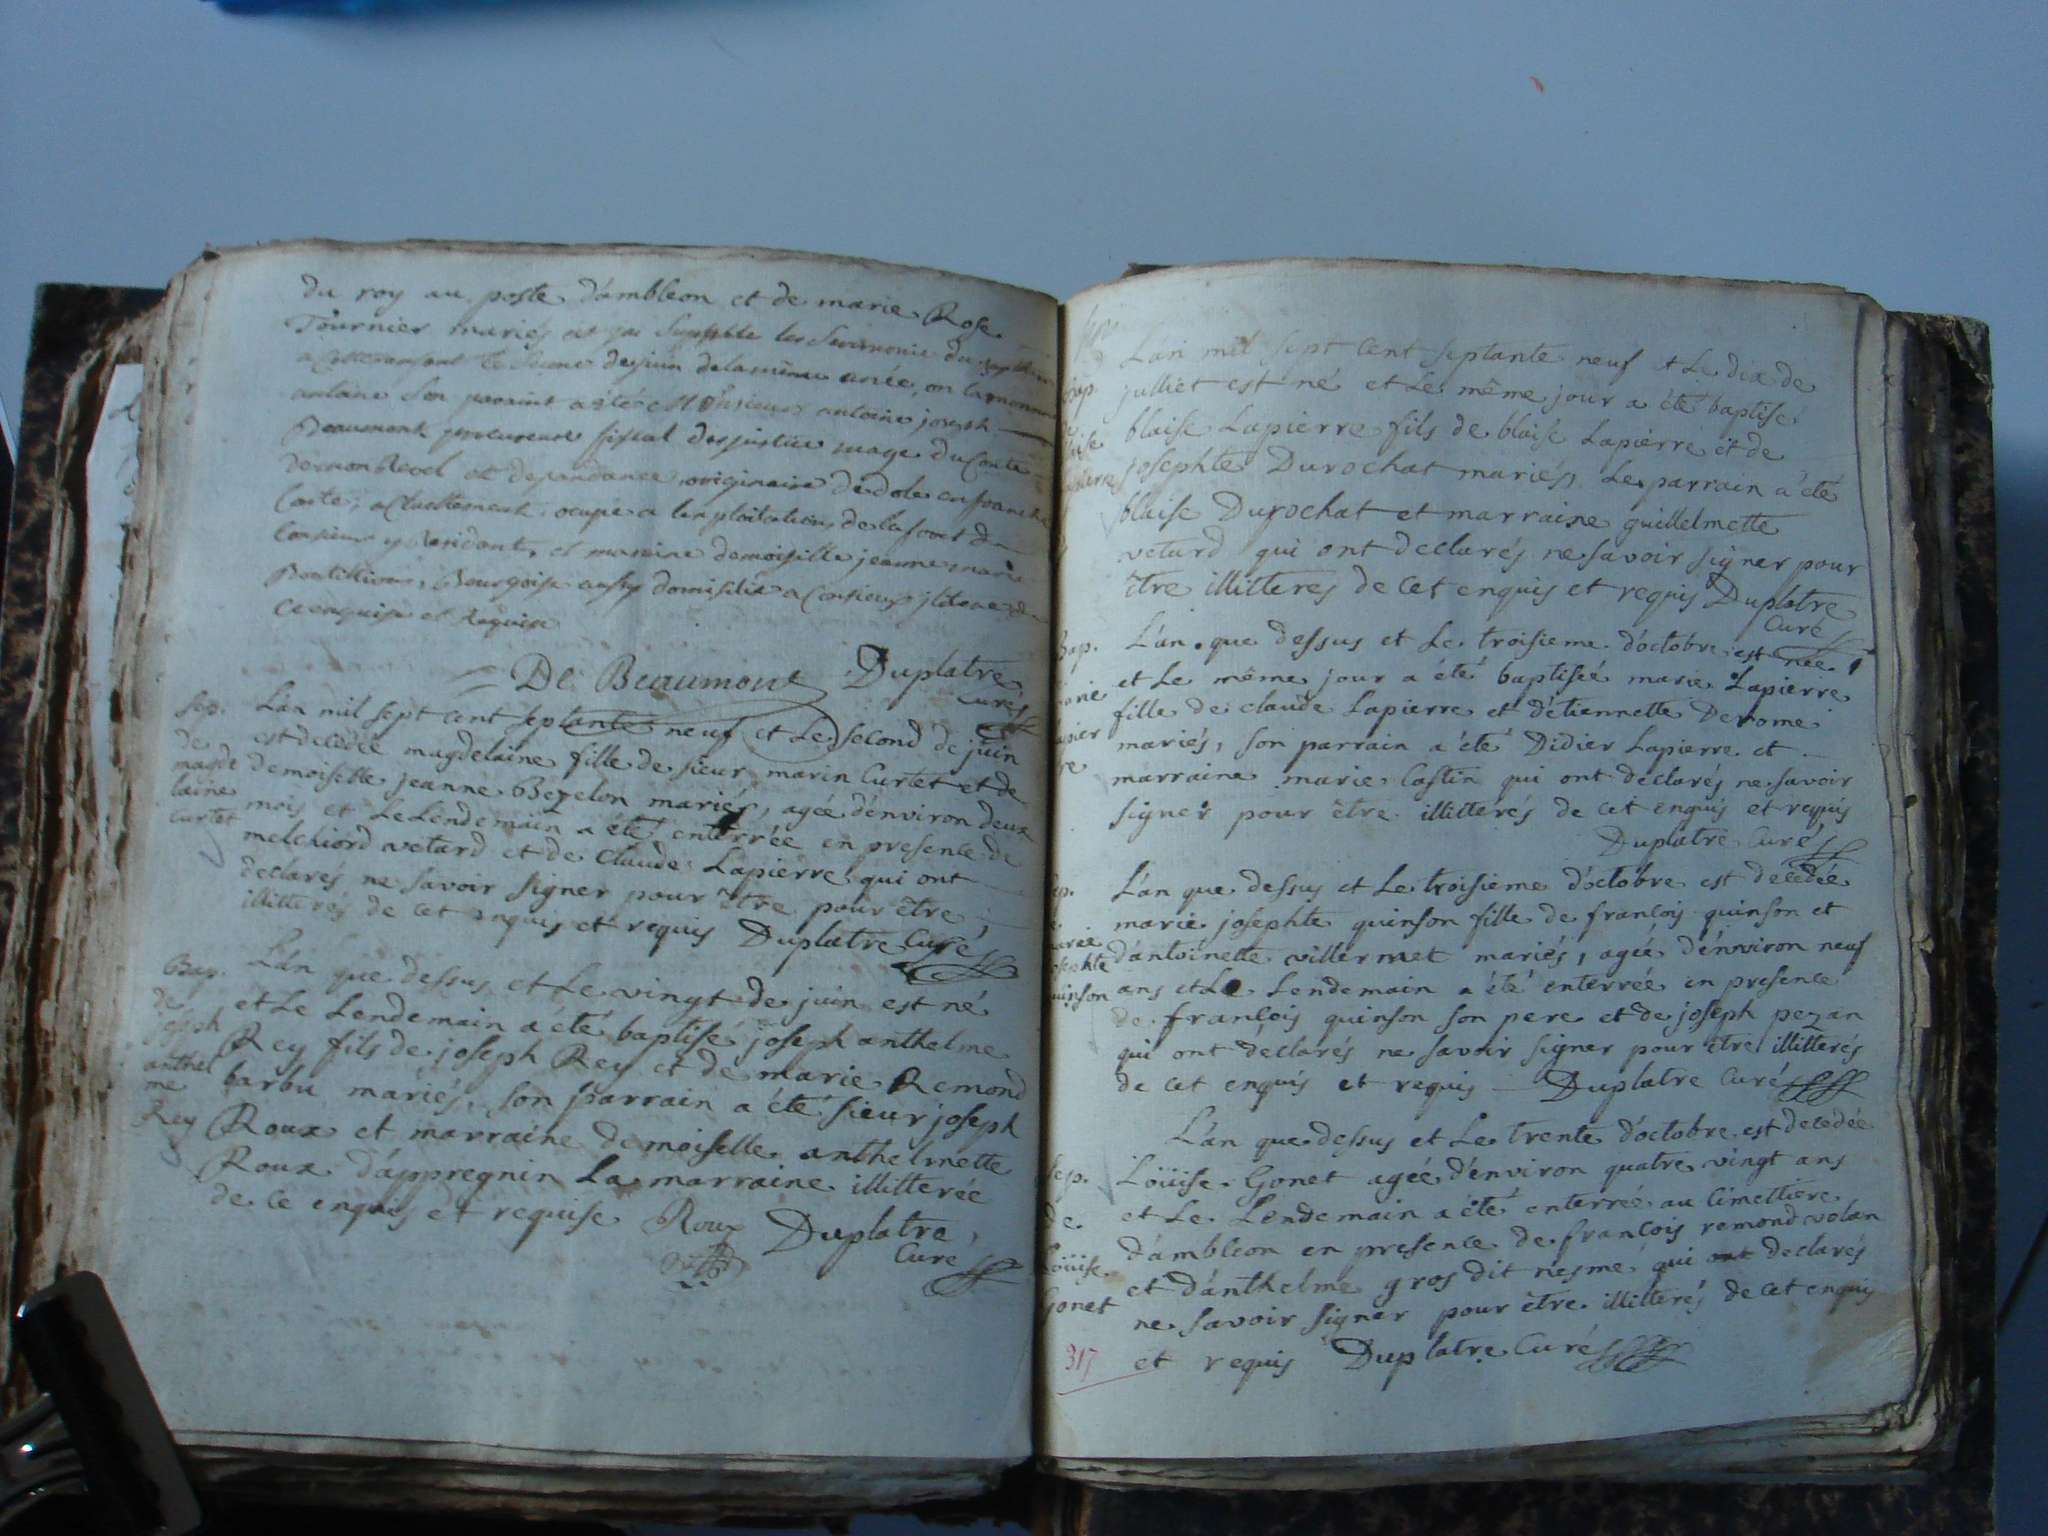 du roy au poste d'ambleon et de marie Rose
Tournier mariés et jai Supplée les Serimonie du
antoine Son parrint a été Monsieur antoine joseph
Beaumont procureur fiscal des justice mage du Conte
et dependance originaire de dole en franche
Conte, actuellement ocupé a lexploitation de la foret de
et marine demoiselle jeanne marie
Bourgoise ausy domisiliée a Consieux
Ce enquise et Requise
De Beaumont Duplatre
Curé
Sep. L'an mil sept cent septante neuf et Le second de juin
de est decedée magdelaine fille de sieur marin Curtet et de
magde demoiselle jeanne Bezelon mariés, ageé d'environ deux
laine mois et Le Lendemain a été enterrée en presence de
Curtet melchiord vetard et de Claude Lapierre qui ont
declarés ne savoir signer pour être pour être
illitterés de cet enquis et requis Duplatre Curé
Bap. L'an que dessus et Le vingt de juin est né
de et Le Lendemain a été baptisé joseph anthelme
joseph Rey fils de joseph Rey et de marie Remond
anthel barbu mariés, son parrain a été sieur joseph
me Roux et marraine demoiselle anthelmette
Rey Roux d'appregnin La marraine illitterée
de ce enquis et requise Roux Duplatre
Curé
L'an mil sept cent septante neuf et Le dix de
Bap. julliet est né et Le même jour a été baptisé
blaise Lapierre fils de blaise Lapierre et de
josephte Durochat mariés, Le parrain a été
blaise Durochat et marraine guillelmette
vetard qui ont declarés ne savoir signer pour
être illitteres de cet enquis et requis Duplatre
Curé
Bap. L'an que dessus et Le troisieme d'octobre est née
et Le même jour a été baptiseé marie Lapierre
fille de claude Lapierre et d'etiennette Derome
mariés, son parrain a été Didier Lapierre et
marraine marie Castin qui ont declarés ne savoir
signer pour être illitterés de cet enquis et requis
Duplatre Curé
L'an que dessus et Le troisieme d'octobre est decedée
marie josephte quinson fille de francois quinson et
d'antoinette villermet mariés, ageé d'énviron neuf
quinson ans et Le Lendemain a été enterrée en presence
de francois quinson son pere et de joseph pezan
qui ont declarés ne savoir signer pour être illitterés
de cet enquis et requis Duplatre Curé
L'an que dessus et Le trente d'octobre est decedée
Sep. Loüise Gonet ageé d'énviron quatre vingt ans
de et Le Lendemain a été enterreé au Cimettiere
d'ambleon en presence de francois remond volan
Loüise et d'anthelme gros dit nesme qui ont declarés
Gonet ne savoir signer pour être illitterés de cet enquis
317 et requis Duplatre Curé